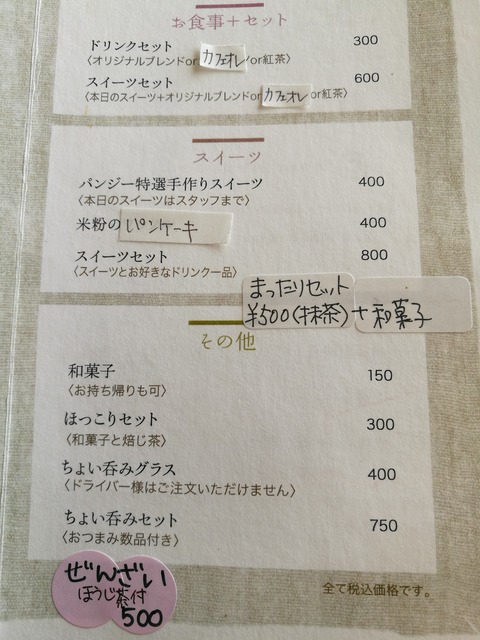 お食事＋セット
ドリンクセット 300
〈オリジナルブレンドorカフェオレ/or紅茶〉
スイーツセット 600
〈本日のスイーツ+オリジナルブレンドorカフェオレ or紅茶〉
スイーツ
パンジー特選手作りスイーツ 400
〈本日のスイーツはスタッフまで〉
米粉のパンケーキ 400
スイーツセット 800
〈スイーツとお好きなドリンク一品〉
まったりセット
¥500(抹茶)+和菓子
その他
和菓子 150
〈お持ち帰りも可〉
ほっこりセット 300
〈和菓子と焙じ茶〉
ちょい呑みグラス 400
〈ドライバー様はご注文いただけません〉
ちょい呑みセット 750
〈おつまみ数品付き〉
ぜんざい
ほうじ茶付
500
全て税込価格です。